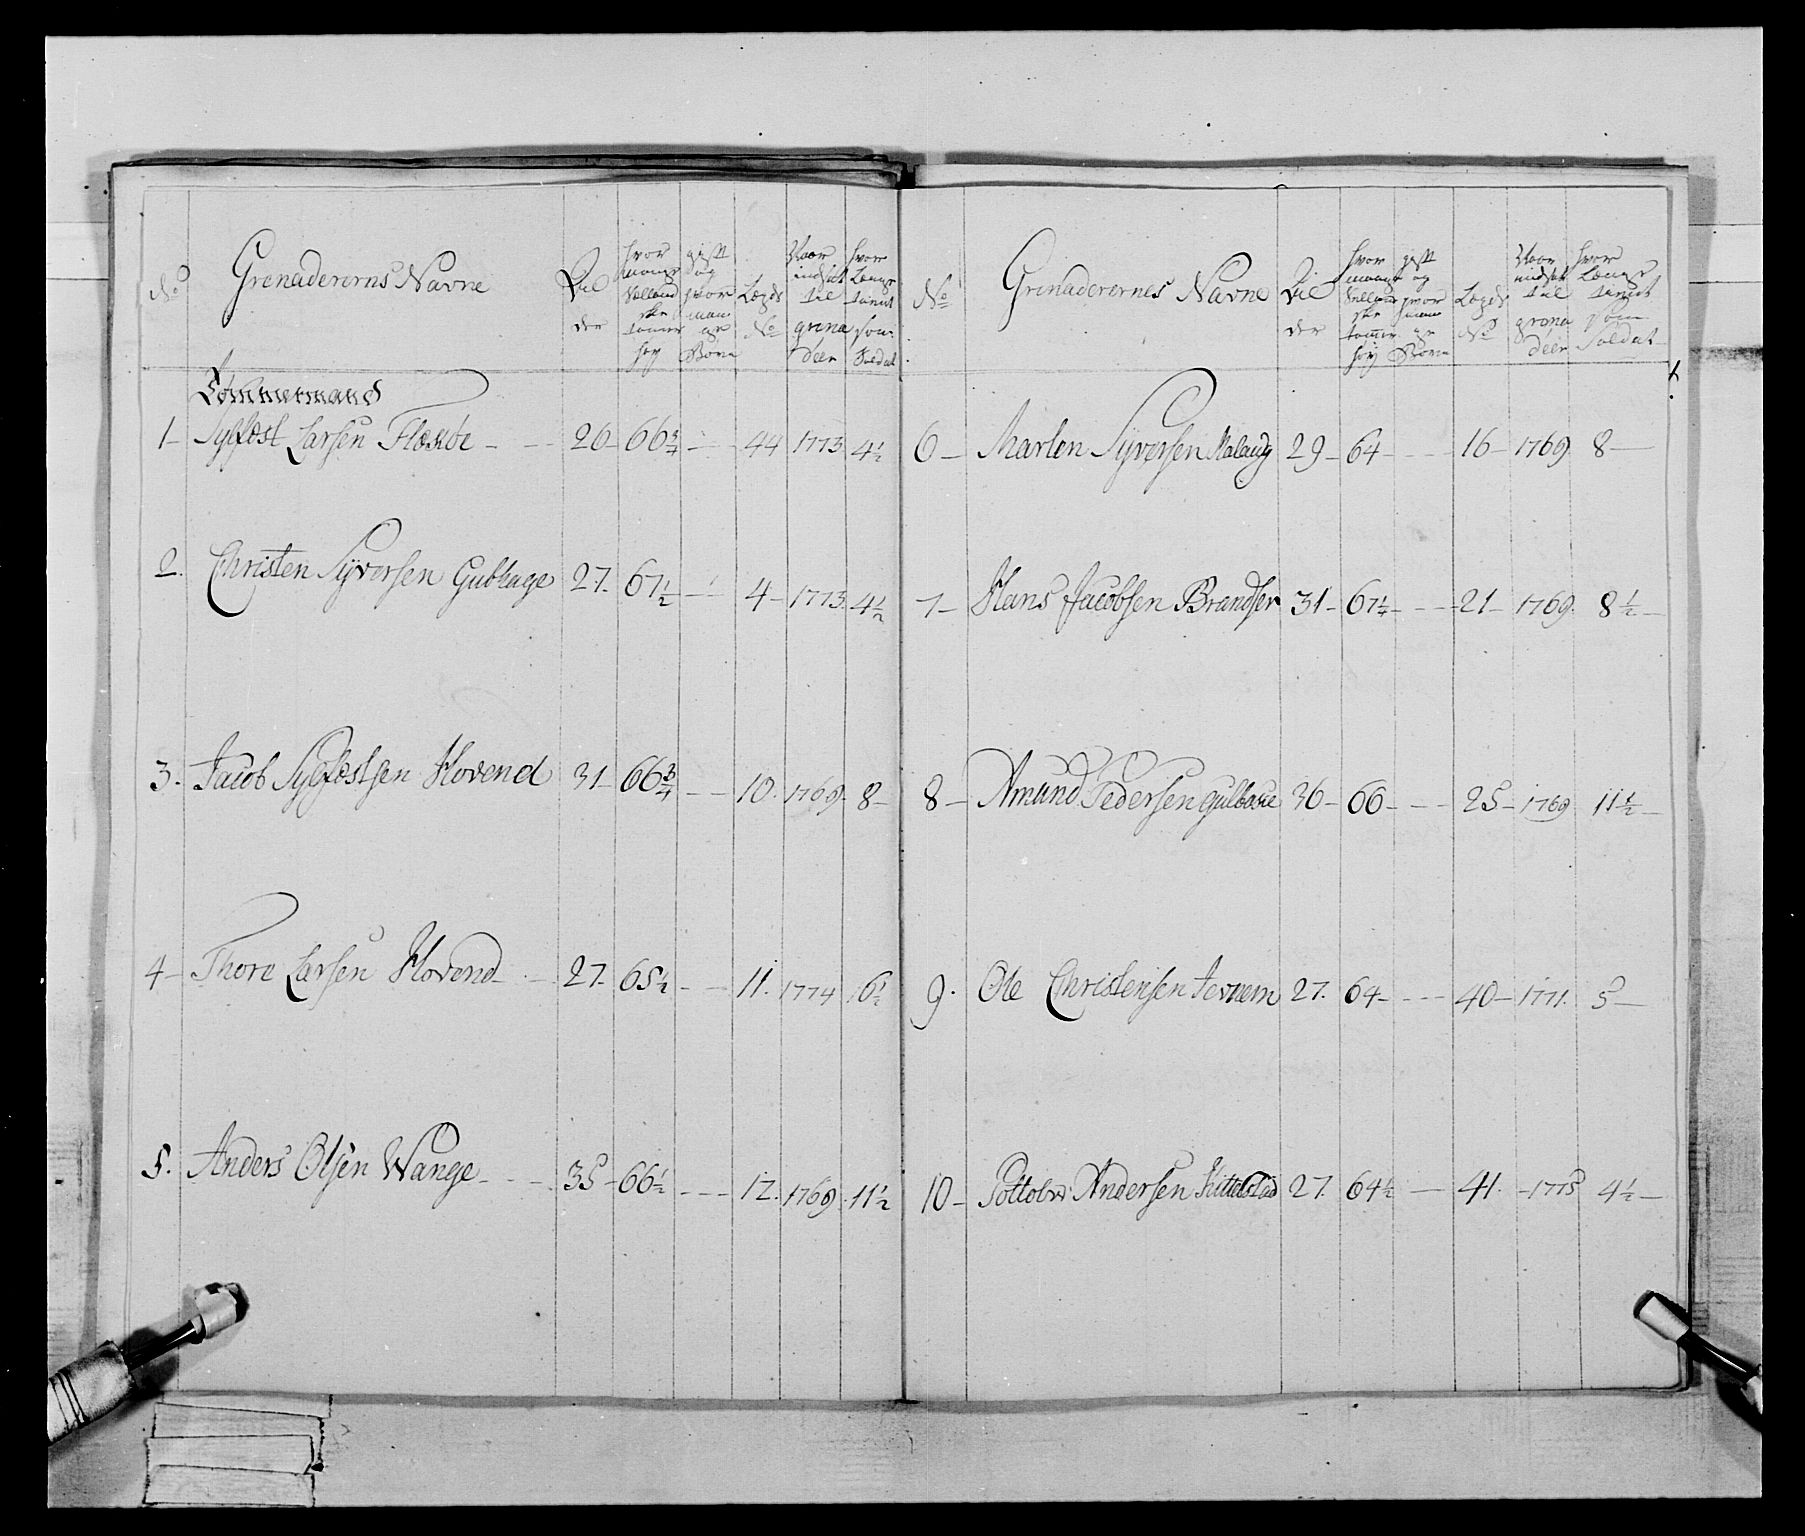 No
Grenaderernes Navne
Al
der
hvor
mange
Sælland
ske
tomer
høy
gift
og
hvor
man
ge
Børn
Lægds
No
Naar
indsat
til
grena
deer
hvor
Længe
tient
som
Soldat
Tømmermand
1 – Sylfæst Larsen – – 26 – 66 3/4 – – 44 1773 4 1/2
2. Christen Syversen Gubhage 27. 67 1/2 – – 4 – 1773. 4 1/2
3. Jacob Sylfæstsen Hovend 31 – 66 3/4 – – 10. 1769. 8 –
4 – Thore Larsen Hovend – – 27. 65 1/2 – – 11. 1774 6 1/2
5. Anders Olsen Wange – – – 35 – 66 1/2 – – – 12. 1769. 11 1/2
No
Grenaderernes Navne
Al
der
hvor
mange
Sælland
ske
tomer
høy
gift
og
hvor
mann
ge
Børn
Lægds
No
Naar
indsat
til
grena
deer
hvor
Længe
tient
som
Soldat
6 – Marlen Syversen 29 – 64 – – – 16 – 1769 8 –
7 – Hans Jacobsen Brandser 31 – 67 1/4 – – – 21 – 1769. 8 1/2 –
8 – Amund Pedersen 36 – 66 – – – 25 – 1769 11 1/2 –
9. Ole Christensen Jevnem 27. 64 – – – – 40 – 1771. 5 –
10 – Andersen Kittelstad 27. 64 1/2 – 41. – 1775 4 1/2 –